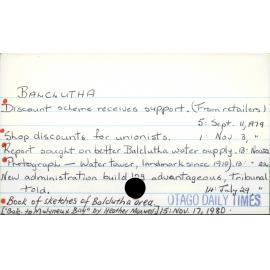 BALCLUTHA
Discount scheme receives support. (From retailers)
5: Sept. 11, 1979
Shop discounts for unionists. 1: Nov 3, "
Report sought on better Balclutha water supply. 13: Nov
Photograph - Water tower, landmark since 1910). 13: "
New administration building advantageous, tribunal
told. 14: July 29 "
Book of sketches of Balclutha area.
["Balc. to Molyneux Bay" by Heather] 15: Nov. 17, 1980.
OTAGO DAILY TIMES